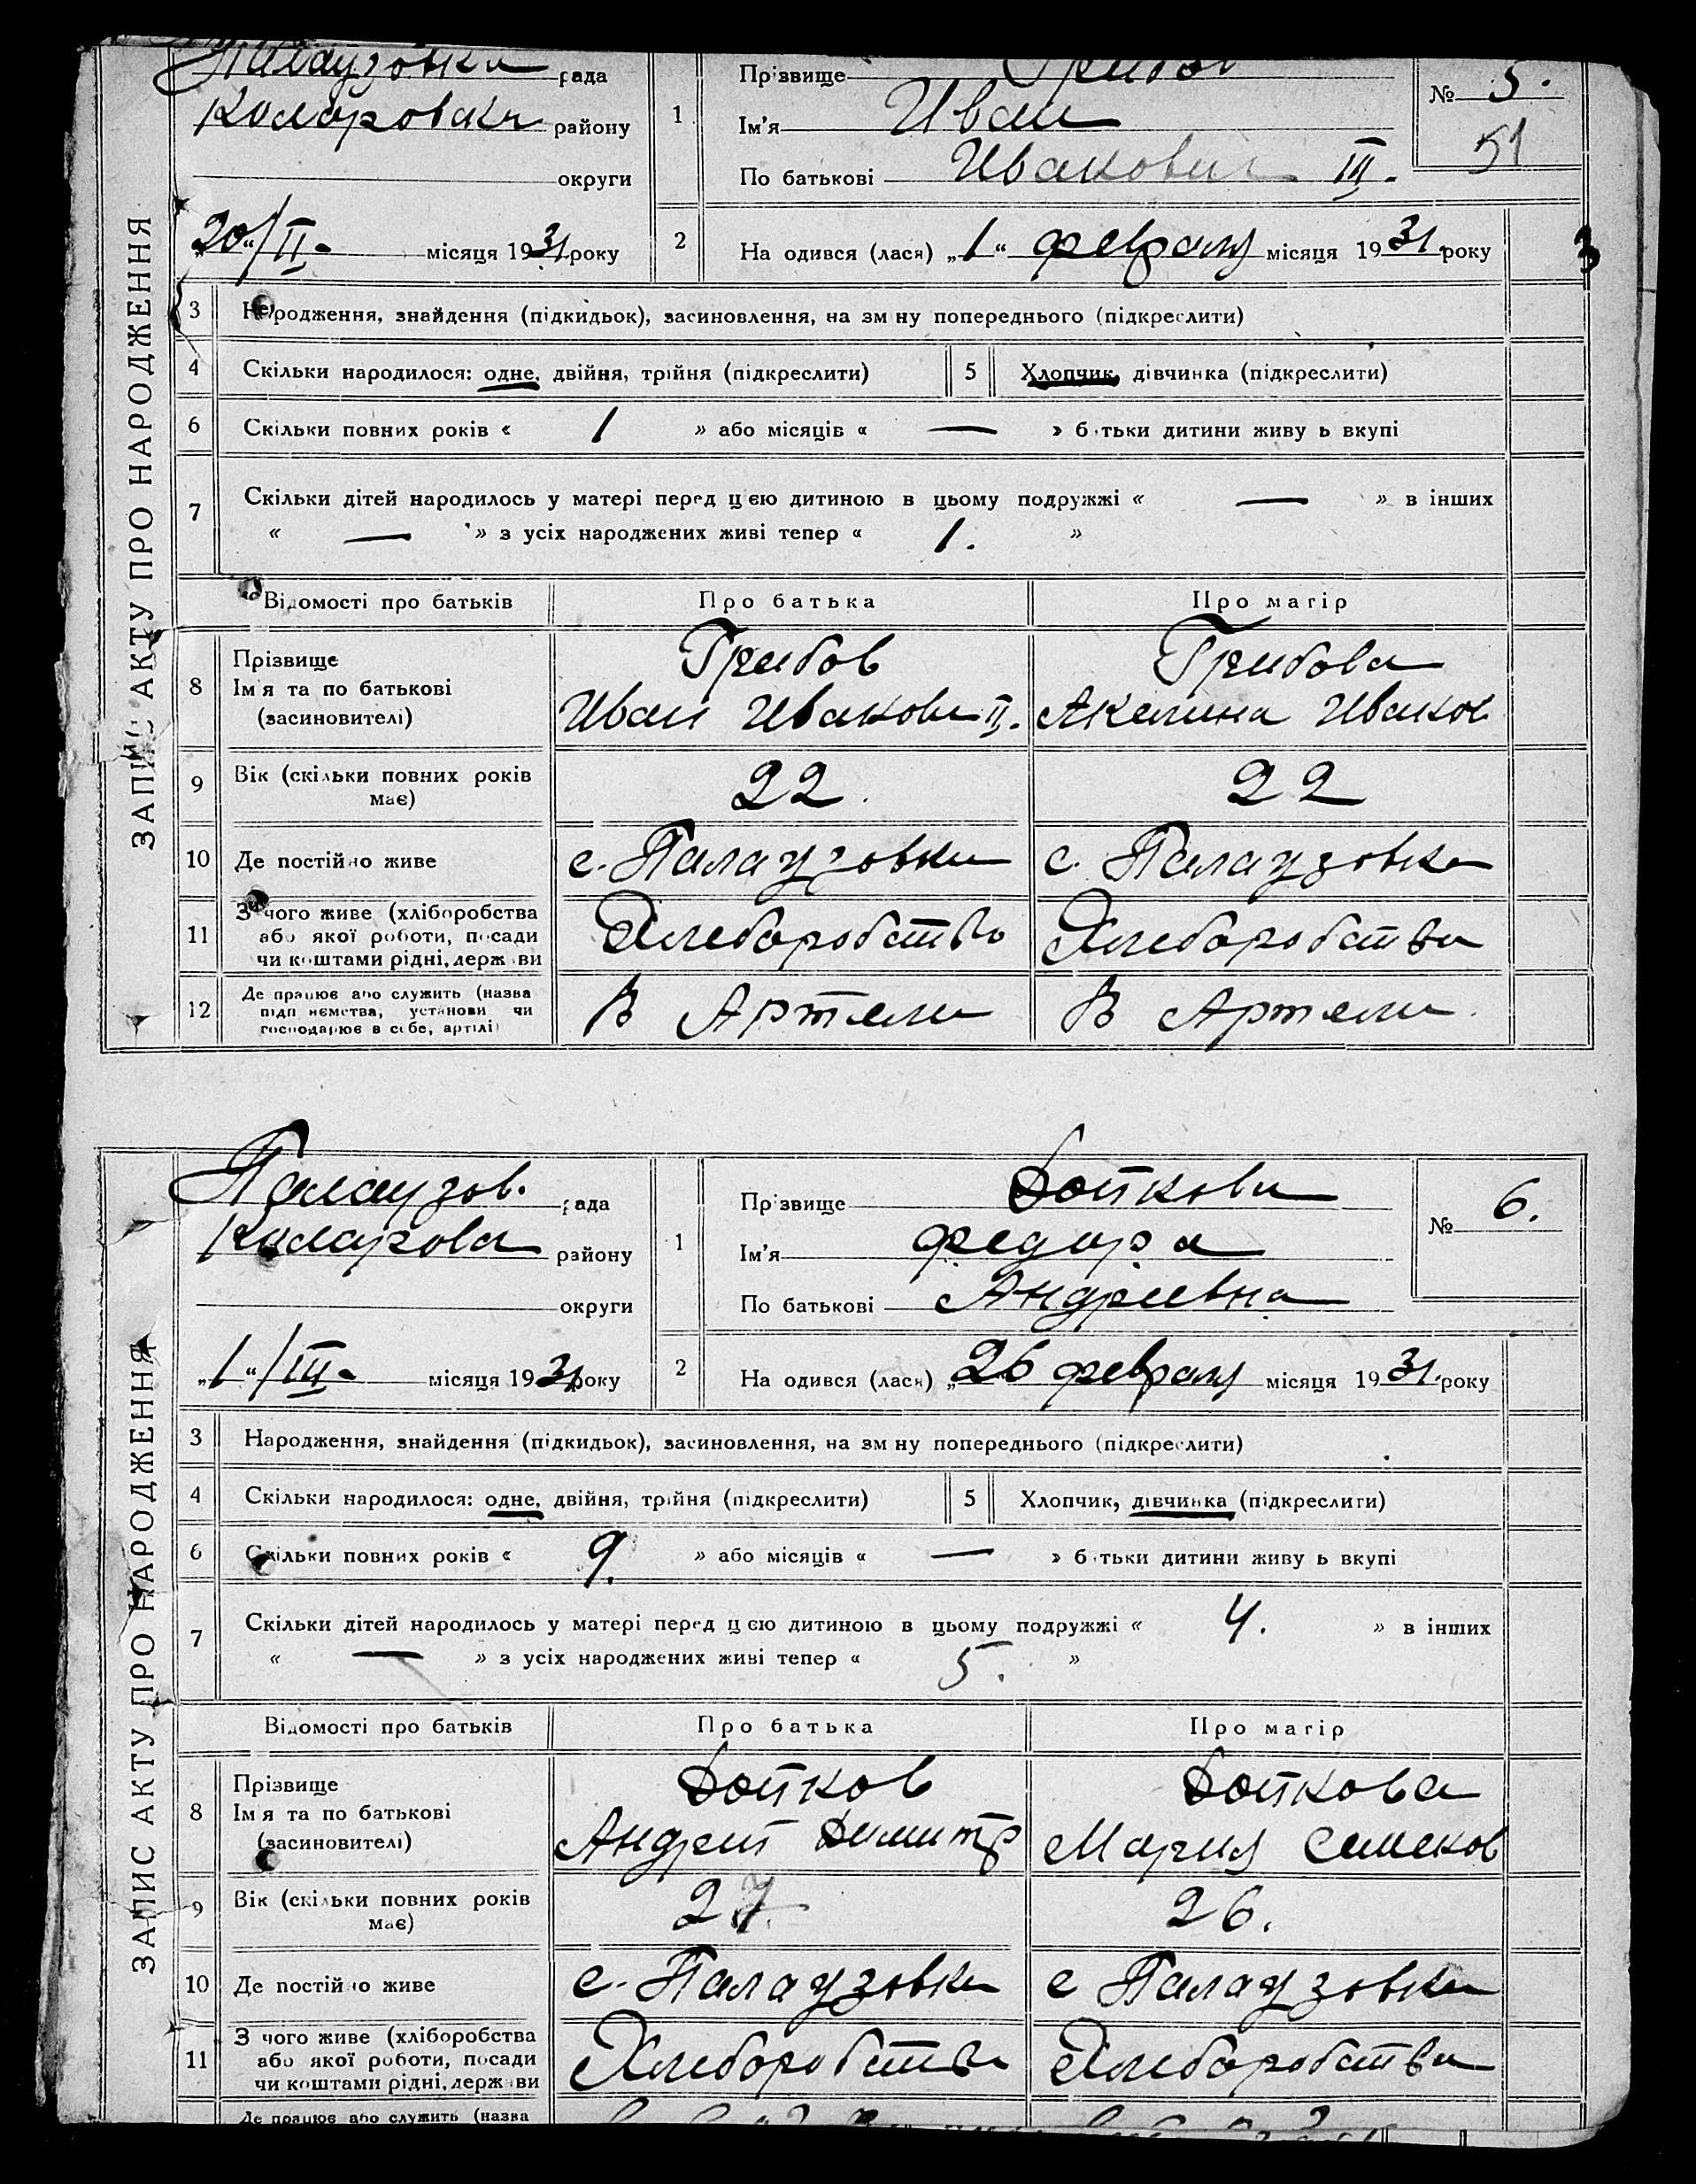 ЗАПИС АКТУ ПРО НАРОДЖЕННЯ
Палаузовка рада
Коларовска району
округи
„20“/II - місяця 1931 року
1
Прізвище Грибов
Ім'я Иван
По батькові Иванович III.
№ 5.
51
2
На одився (лася) „1“ февраля місяця 1931 року
3
3 Народження, знайдення (підкидьок), засиновлення, на зм ну попереднього (підкреслити)
4 Скільки народилося: одне, двійня, трійня (підкреслити)
5 Хлопчик, дівчинка (підкреслити)
6 Скільки повних років « 1 » або місяців « — » б тьки дитини живу ь вкупі
7 Скільки дітей народилось у матері перед цією дитиною в цьому подружжі « — » в інших
« — » з усіх народжених живі тепер « 1. »
Відомості про батьків Про батька Про матір
8 Прізвище
Ім'я та по батькові
(засиновителі)
Грибов
Иван Иванови II.
Грибова
Акелина Иванов
9 Вік (скільки повних років
має)
22. 22
10 Де постійно живе с. Палаузовка с. Палаузовка
11 З чого живе (хліборобства
або якої роботи, посади
чи коштами рідні, держ ви
Хлеборобство Хлеборобства
12 Де працює або служить (назва
підп иємства, установи чи
господарює в себе, артілі)
В Артели В Артели
ЗАПИС АКТУ ПРО НАРОДЖЕННЯ
Палаузов. рада
Каларова району
округи
„1“/III - місяця 1931 року
1
Прізвище Дойкова
Ім'я Федора
По батькові Андриевна
№ 6.
2
На одився (лася) „26 февраля місяця 1931. року
3 Народження, знайдення (підкидьок), засиновлення, на зм ну попереднього (підкреслити)
4 Скільки народилося: одне, двійня, трійня (підкреслити)
5 Хлопчик, дівчинка (підкреслити)
6 Скільки повних років « 9. » або місяців « — » б тьки дитини живу ь вкупі
7 Скільки дітей народилось у матері перед цією дитиною в цьому подружжі « 4. » в інших
« — » з усіх народжених живі тепер « 5. »
Відомості про батьків Про батька Про матір
8 Прізвище
Ім'я та по батькові
(засиновителі)
Дойков
Андрей Димитр
Дойкова
Мария Семенов
9 Вік (скільки повних років
має)
27. 26.
10 Де постійно живе с. Палаузовка с Палаузовка
11 З чого живе (хліборобства
або якої роботи, посади
чи коштами рідні, держ ви
Хлеборобства Хлеборобства
Де працює або служить (назва